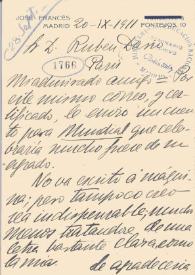 JOSÉ FRANCÉS
MADRID 20-IX-1911 PONTEJOS 10
Sr D. Rubén Darío
París
1766
Mi admirado amigo: Por
este mismo correo, y cer-
tificado, le envío un cuen-
to para Mundial que cele-
braría mucho fuera de su
agrado.
No va escrito a máqui-
na; pero tampoco creo
sea indispensable, mucho
menos tratándose, de una
letra bastante clara, como
la mía
de agradecería